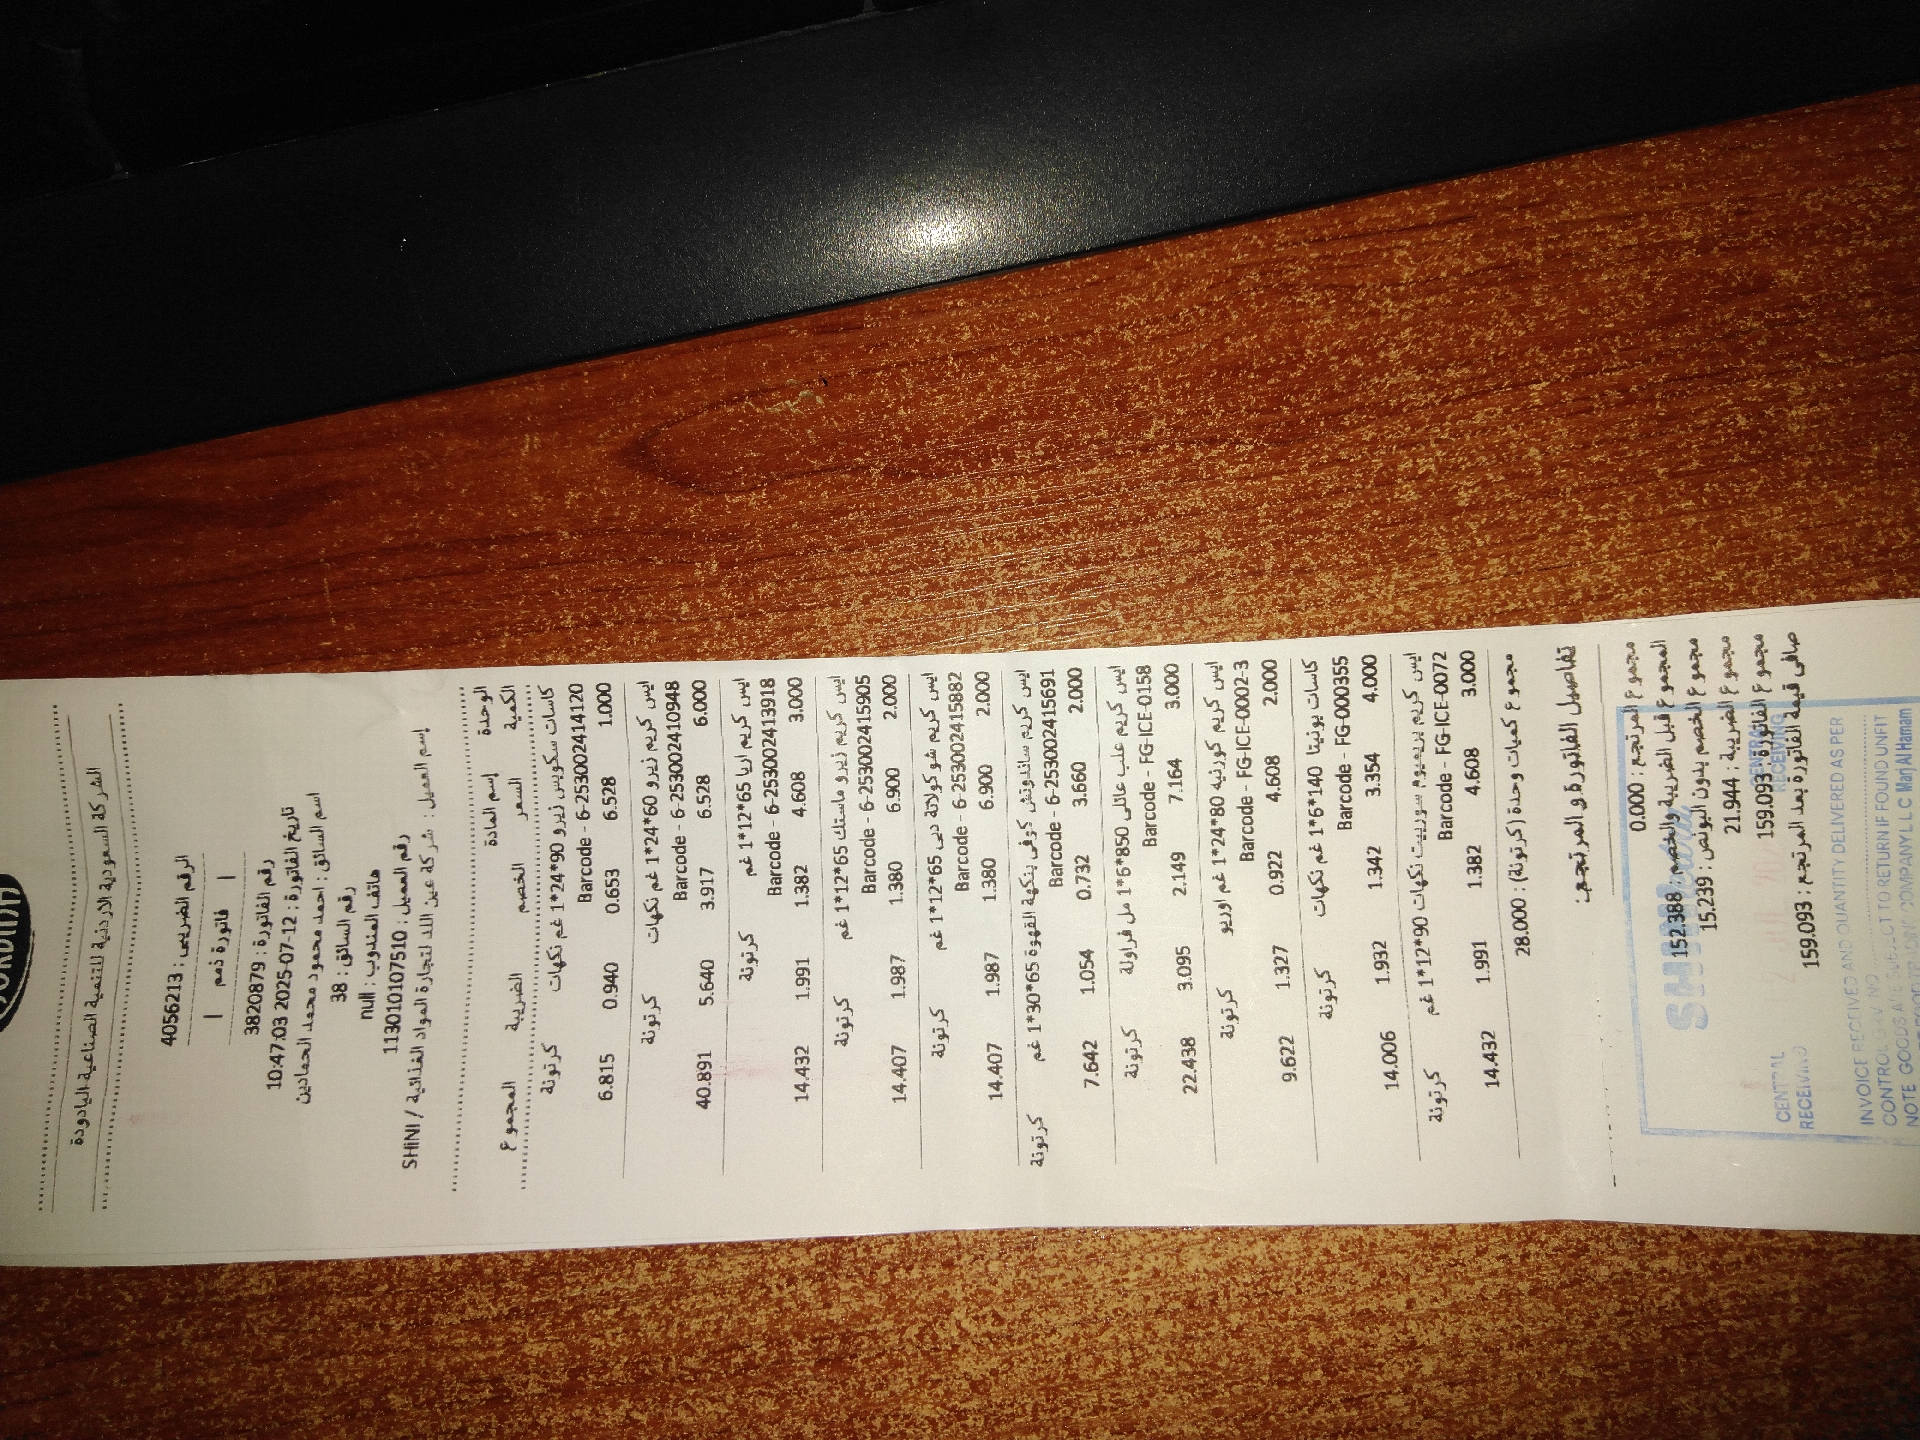 الشركة السعودية الاردنية للتنمية الصناعية اليادودة
الرقم الضريبي : 4056213
ا فاتورة ذمم ا
رقم الفاتورة : 3820879
تاريخ الفاتورة : 12-07-2025 10:47:03
اسم السائق : احمد محمود محمد الحمادين
رقم السائق : 38
هاتف المندوب : null
رقم العميل : 1130101107510
إسم العميل : شركة عين اللد لتجارة المواد الغذائية / SHiNI
الوحدة إسم المادة
الكمية السعر الخصم الضريبة المجموع
كاسات سكويس زيرو 90*24*1 غم نكهات كرتونة
Barcode - 6-253002414120
1.000 6.528 0.653 0.940 6.815
ايس كريم زيرو 60*24*1 غم نكهات كرتونة
Barcode - 6-253002410948
6.000 6.528 3.917 5.640 40.891
ايس كريم اريا 65*12*1 غم كرتونة
Barcode - 6-253002413918
3.000 4.608 1.382 1.991 14.432
ايس كريم زيرو ماستك 65*12*1 غم كرتونة
Barcode - 6-253002415905
2.000 6.900 1.380 1.987 14.407
ايس كريم شوكولاتة دبي 65*12*1 غم كرتونة
Barcode - 6-253002415882
2.000 6.900 1.380 1.987 14.407
ايس كريم ساندوتش كوفي بنكهة القهوة 65*30*1 غم كرتونة
Barcode - 6-253002415691
2.000 3.660 0.732 1.054 7.642
ايس كريم علب عائلي 850*6*1 مل فراولة كرتونة
Barcode - FG-ICE-0158
3.000 7.164 2.149 3.095 22.438
ايس كريم كورنيه 80*24*1 غم اوريو كرتونة
Barcode - FG-ICE-0002-3
2.000 4.608 0.922 1.327 9.622
كاسات بونيتا 140*6*1 غم نكهات كرتونة
Barcode - FG-000355
4.000 3.354 1.342 1.932 14.006
ايس كريم بريميوم سوربيت نكهات 90*12*1 غم كرتونة
Barcode - FG-ICE-0072
3.000 4.608 1.382 1.991 14.432
مجموع كميات وحدة (كرتونة) : 28.000
تفاصيل الفاتورة و المرتجع:
مجموع المرتجع : 0.000
المجموع قبل الضريبة والخصم : 152.388
مجموع الخصم بدون البونص : 15.239
مجموع الضريبة : 21.944
مجموع الفاتورة : 159.093
صافي قيمة الفاتورة بعد المرتجع : 159.093
CENTRAL
RECEIVING
RECEIVING
INVOICE RECEIVED AND QUANTITY DELIVERED AS PER
NOTE GOODS ARE SUBJECT TO RETURN IF FOUND UNFIT
COMPANY L.L.C Marj Al Hamam